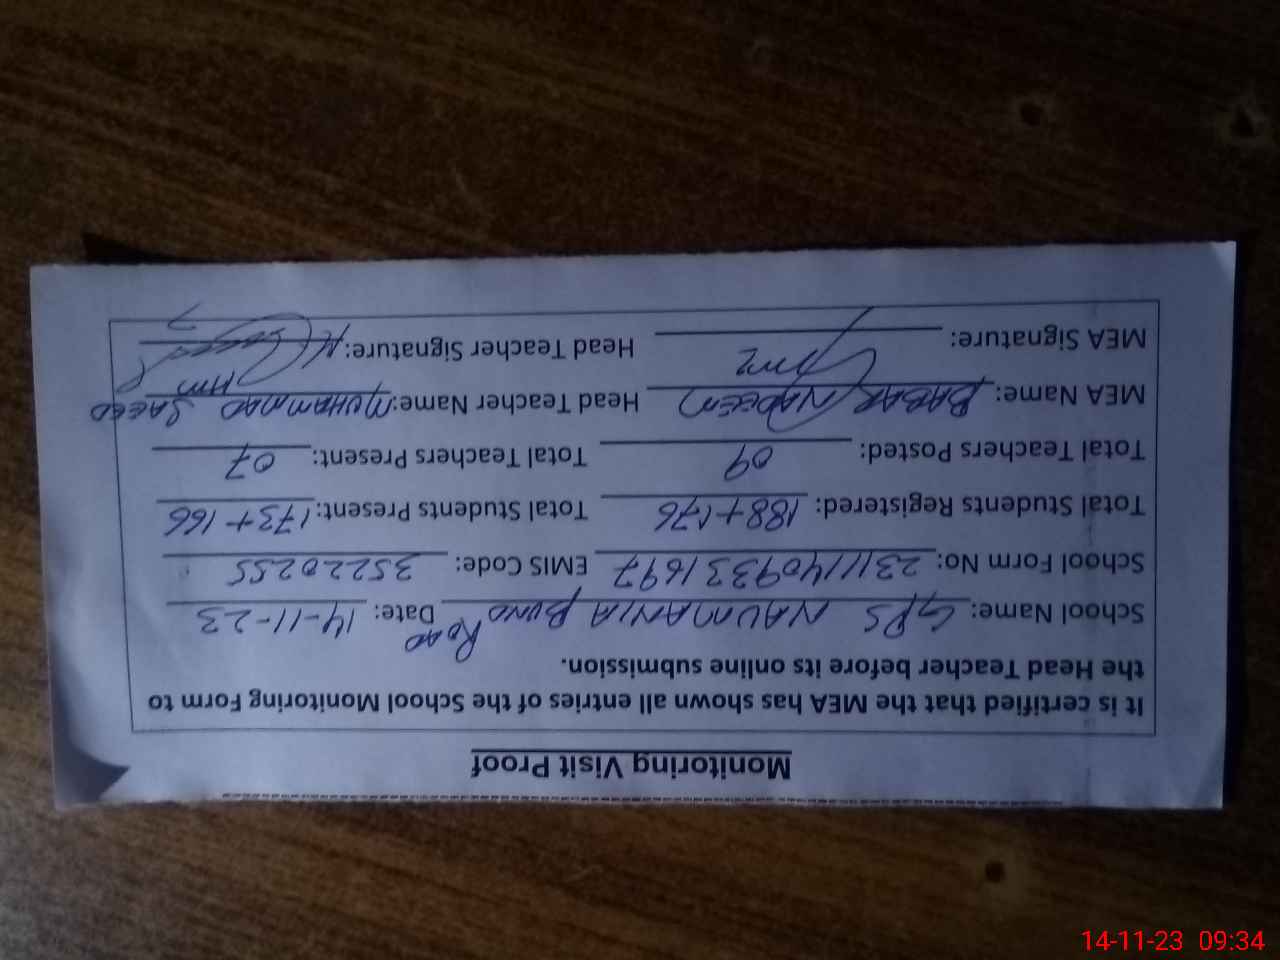 Monitoring Visit Proof
It is certified that the MEA has shown all entries of the School Monitoring Form to
the Head Teacher before its online submission.
School Name: GPS NAUMANIA BUND ROAD Date: 14-11-23
School Form No: 23111409331697 EMIS Code: 35220255
Total Students Registered: 188+176 Total Students Present: 173+166
Total Teachers Posted: 09 Total Teachers Present: 07
MEA Name: BABAR NADEEM Head Teacher Name: MUHAMMAD SAEED
MEA Signature: Head Teacher Signature:
14-11-23 09:34